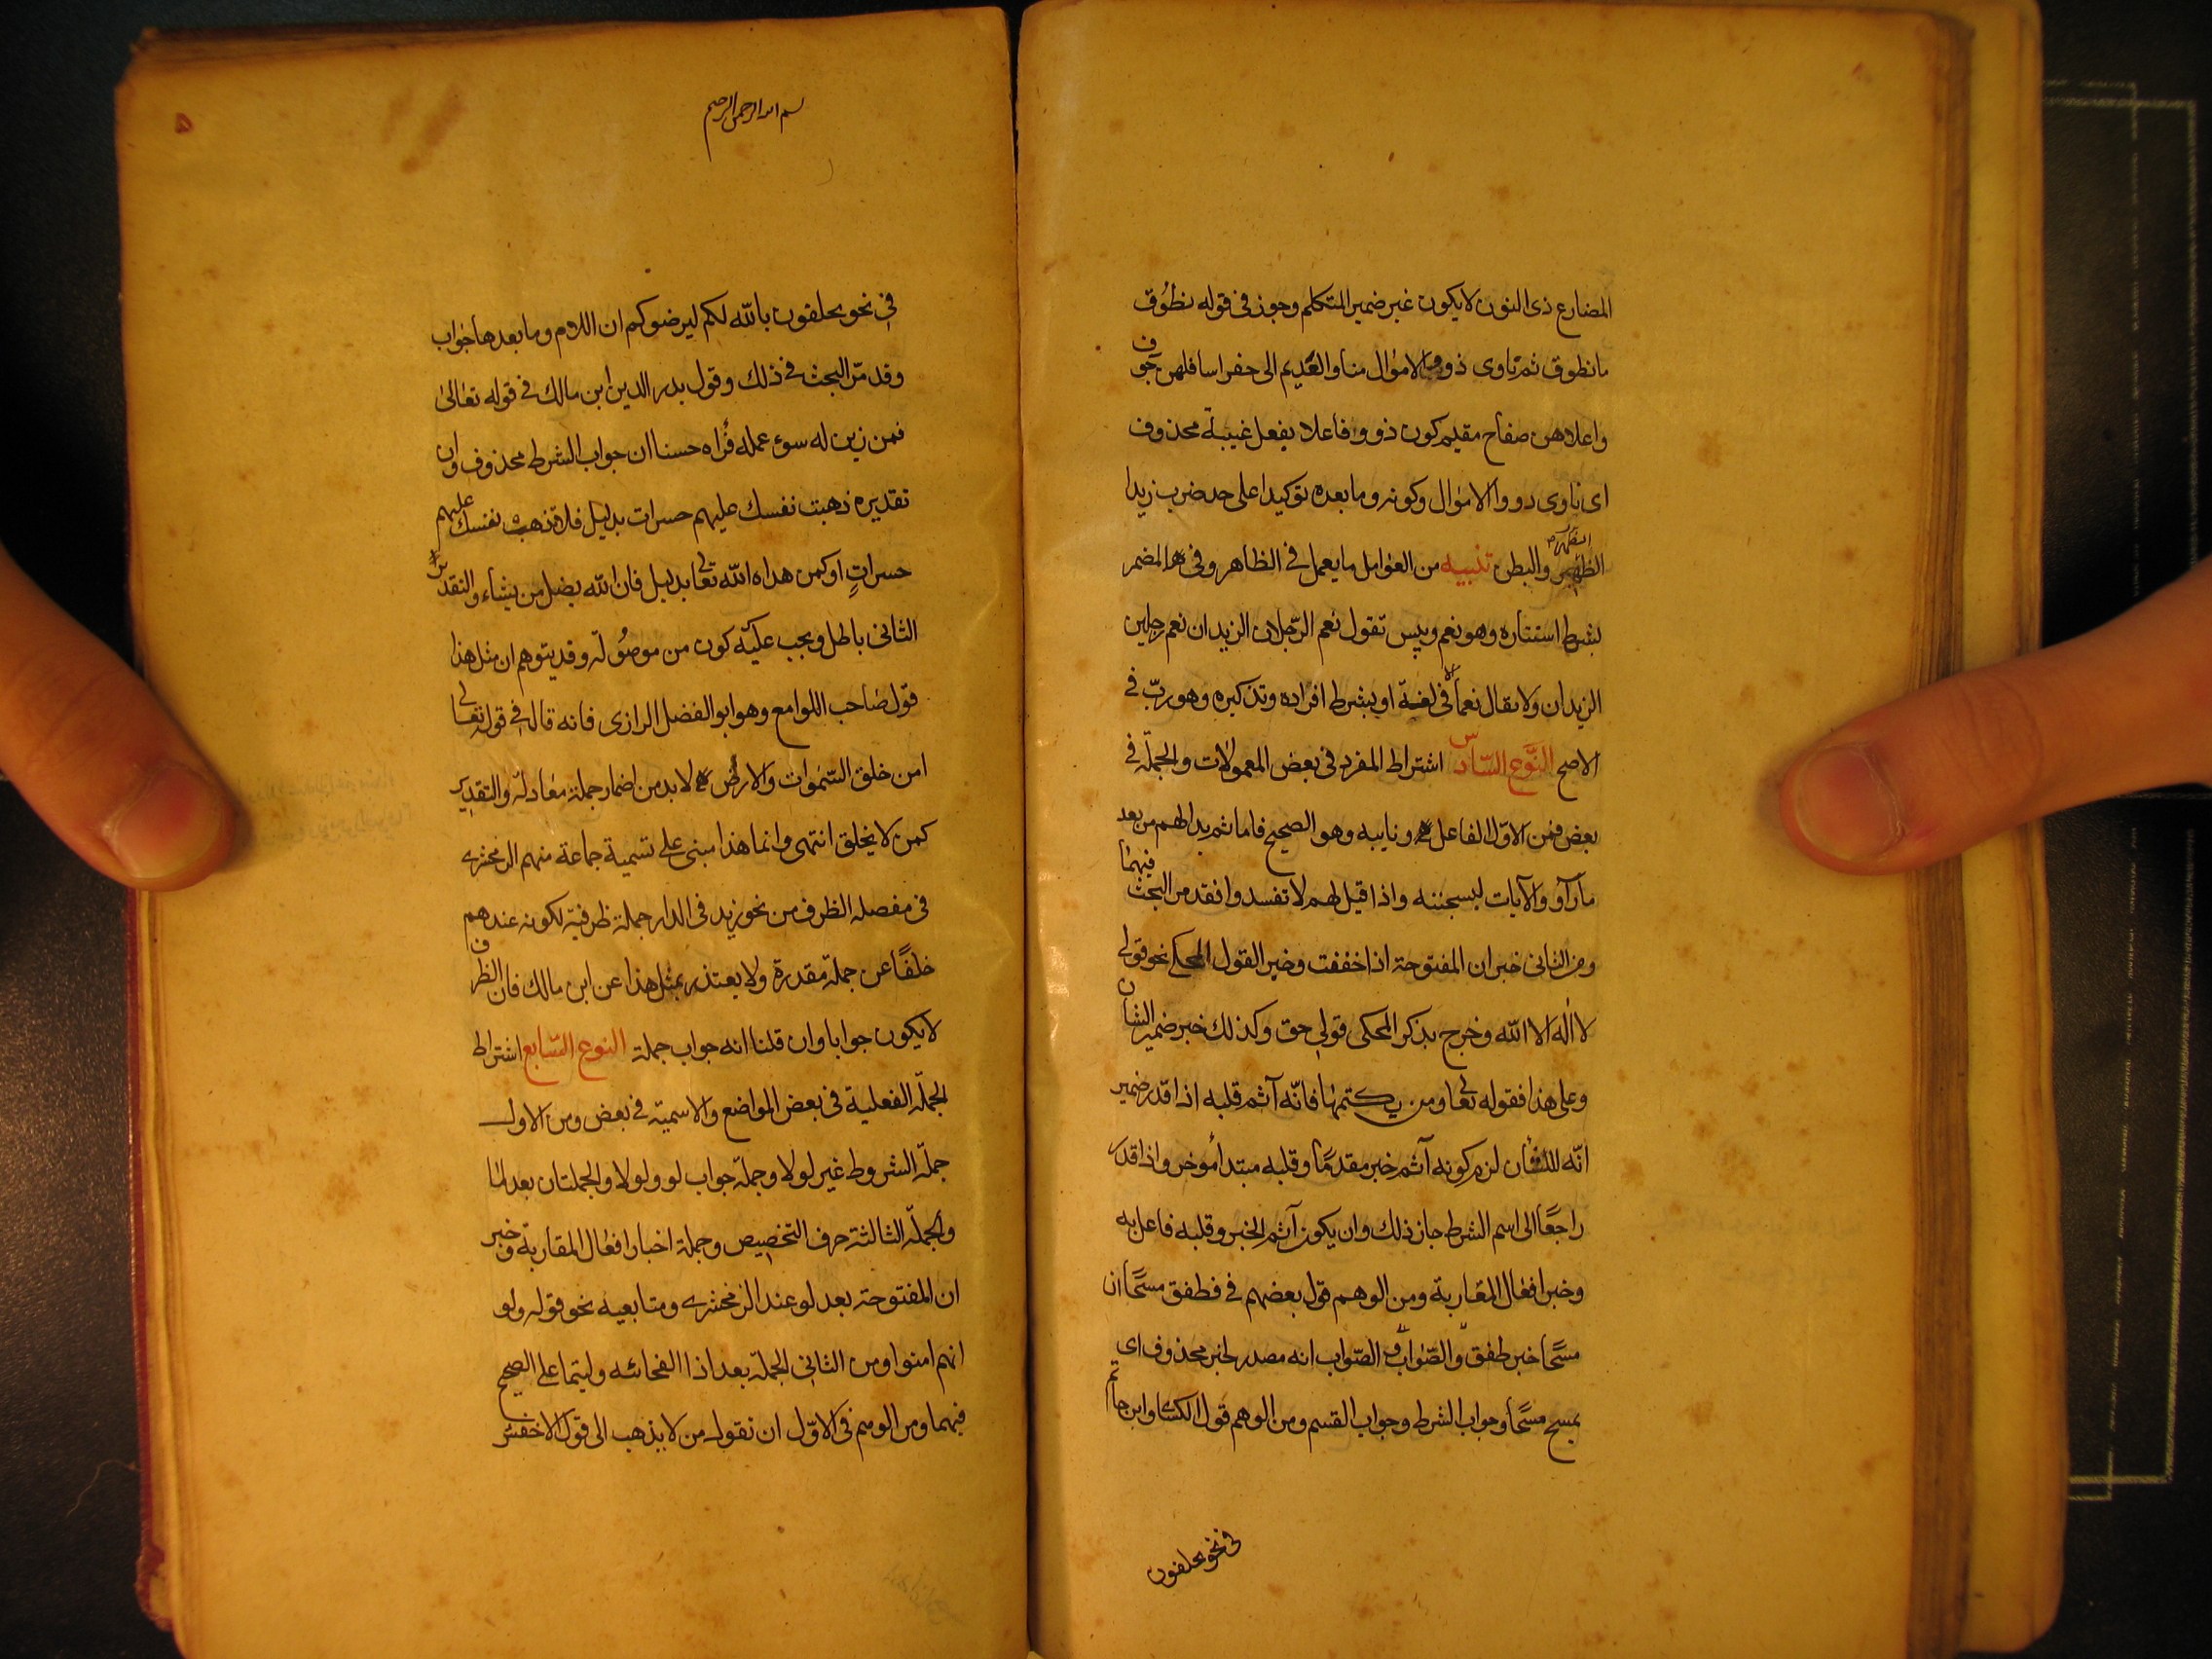 المضارع ذى النون لا يكون غير ضمير المتكلم وجوز فى قوله نطوف
ما نطوف ثم ياوى ذووا الاموال منا والعديم الى حفر اسافلهن جوف
واعلاهن صفاح مقيم كون ذووا فاعلا بفعل غيبة محذوف
اى ياوى ذووا الاموال وكونه وما بعده توكيدا على حد ضرب زيدا
الظهر والبطن تنبيه من العوامل ما يعمل فى الظاهر وفى المضمر
بشرط استتاره وهو نعم وبيس تقول نعم الرجلان الزيدان نعم رجلين
الزيدان ولا يقال نعما الا فى لغية او بشرط افراده وتذكيره وهو رب فى
الاصح النوع السادس اشتراط المفرد فى بعض المعمولات والجملة فى
بعض فمن الاول الفاعل ونايبه وهو الصحيح فاما ثم بدا لهم من بعد
ما رآو والآيات ليسجننه واذا قيل لهم لا تفسدوا فقد مر البحث فيهما
ومن الثانى خبر ان المفتوحة اذا خففت وخبر القول المحكى نحو قولى
لا اله الا الله وخرج بذكر المحكى قولى حق وكذلك خبر ضمير الشان
وعلى هذا فقوله تعالى ومن يكتمها فانه آثم قلبه اذا قدر ضمير
انه للشان لزم كونه آثم خبر مقدما وقلبه مبتدأ موخر واذا قدر
راجعا الى اسم الشرط جاز ذلك وان يكون آثم الخبر وقلبه فاعل به
وخبر افعال المقاربة ومن الوهم قول بعضهم فى فطفق مسحا ان
مسحا خبر طفق والصواب الصواب انه مصدر لخبر محذوف اى
يمسح مسحا وجواب الشرط وجواب القسم ومن الوهم قول الكسائى وابن حاتم
فى نحو يحلفون
بسم الله الرحمن الرحيم
٥
فى نحو يحلفون بالله لكم ليرضوكم ان اللام وما بعدها جواب
وقد مر البحث فى ذلك وقول بدر الدين ابن مالك فى قوله تعالى
فمن زين له سوء عمله فرآه حسنا ان جواب الشرط محذوف وان
تقديره ذهبت نفسك عليهم حسرات بدليل فلا تذهب نفسك عليهم
حسرات او كمن هداه الله تعالى بدليل فان الله يضل من يشاء والتقدير
الثانى باطل ويجب عليه كون من موصولة وقد يتوهم ان مثل هذا
قول صاحب اللوامع وهو ابو الفضل الرازى فانه قال فى قوله تعالى
امن خلق السموات والارض لا بد من اضمار جملة معادلة والتقدير
كمن لا يخلق انتهى وانما هذا مبنى على تسمية جماعة منهم الزمخشرى
فى مفصله الظرف من نحو زيد فى الدار جملة ظرفية لكونه عندهم
خلفا عن جملة مقدرة ولا يعتذر بمثل هذا عن ابن مالك فان الظرف
لا يكون جوابا وان قلنا انه جواب جملة النوع السابع اشتراط
الجملة الفعلية فى بعض المواضع والاسمية فى بعض ومن الاول
جملة الشروط غير لولا وجملة جواب لو ولولا والجملتان بعد لما
والجملة الثالثة حرف التخصيص وجملة اخبار افعال المقاربة وخبر
ان المفتوحة بعد لو عند الزمخشرى ومتابعيه نحو قوله ولو
انهم امنوا ومن الثانى الجملة بعد اذا الفجائيه وليتما على الصحيح
فيهما ومن الوهم فى الاول ان تقول من لا يذهب الى قول الاخفش